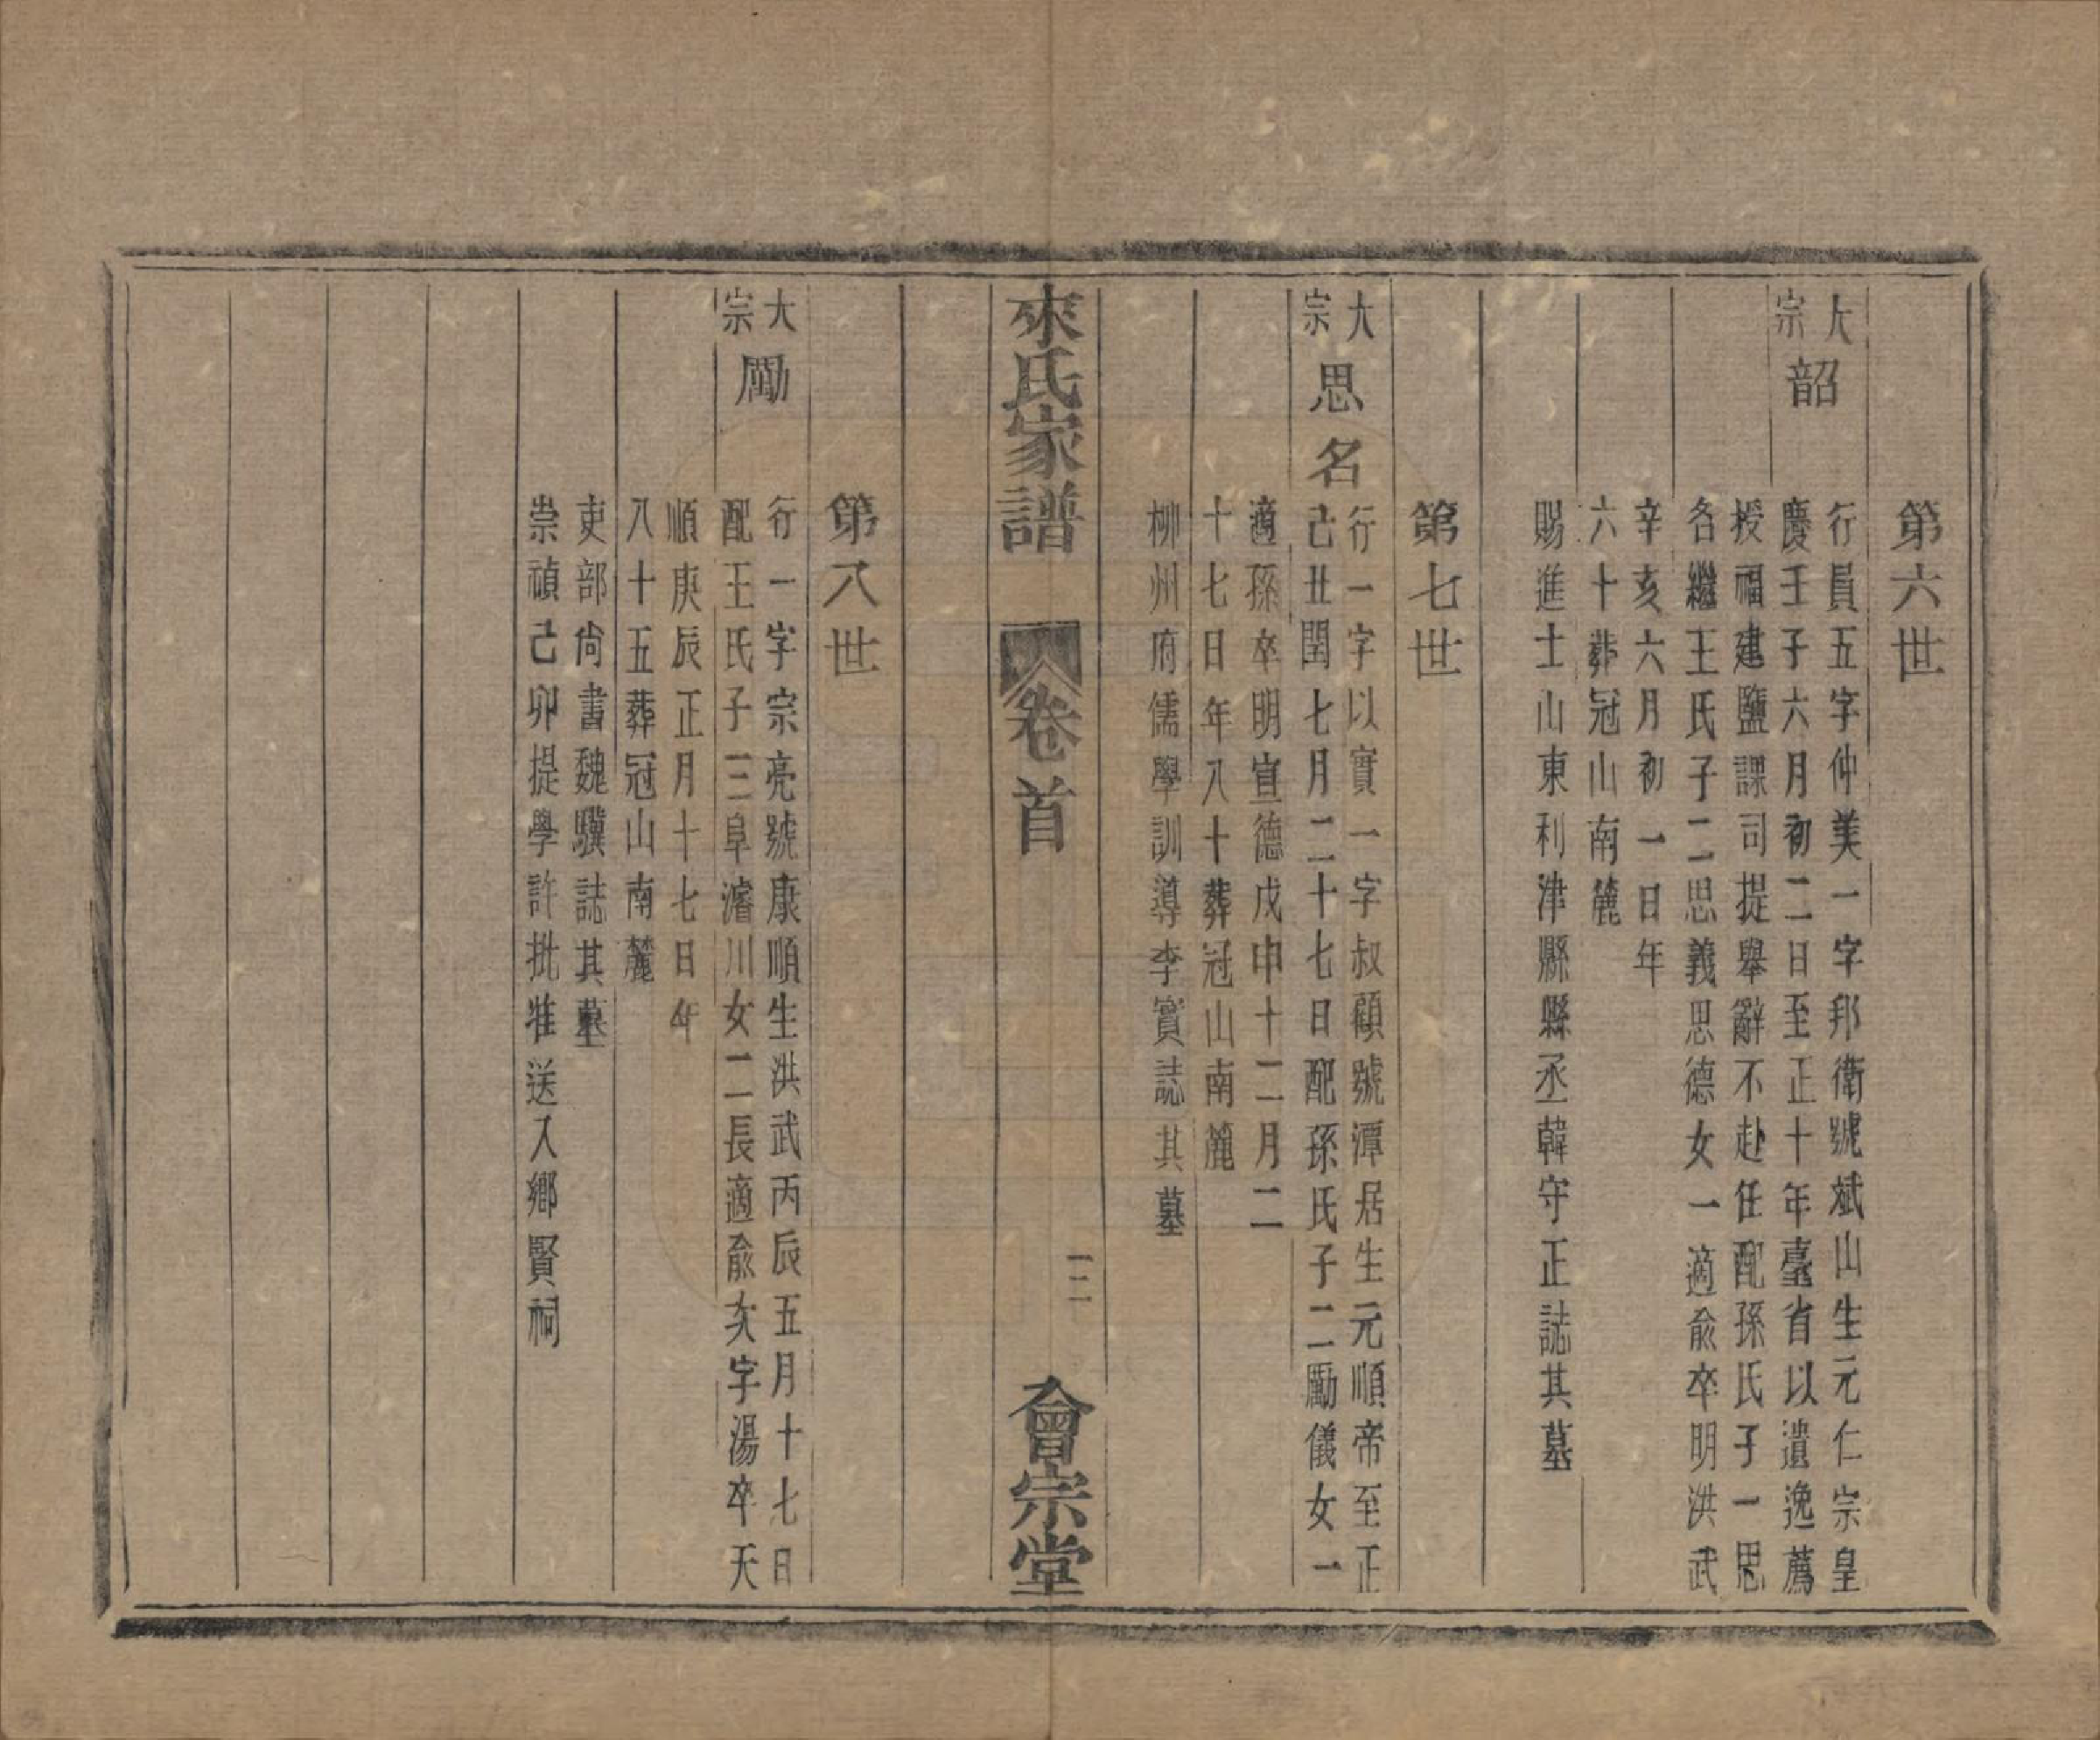 第六世
大宗 韶
行員五字仲美一字邦衛號斌山生元仁宗皇
慶壬子六月初二日至正十年臺省以遺逸薦
授福建鹽課司提舉辭不赴任配孫氏子一思
名繼王氏子二思義思德女一適俞卒明洪武
辛亥六月初一日年
六十葬冠山南麓
賜進士山東利津縣縣丞韓守正誌其墓
第七世
大宗 思名
行一字以實一字叔顧號潭居生元順帝至正
己丑閏七月二十七日配孫氏子二勵儀女一
適孫卒明宣德戊申十二月二
十七日年八十葬冠山南麓
柳州府儒學訓導李實誌其墓
來氏家譜 卷首 二 會宗堂
第八世
大宗 勵
行一字宗亮號康順生洪武丙辰五月十七日
配王氏子三阜濬川女二長適俞次字湯卒天
順庚辰正月十七日年
八十五葬冠山南麓
吏部尚書魏驥誌其墓
崇禎己卯提學許批准送入鄉賢祠